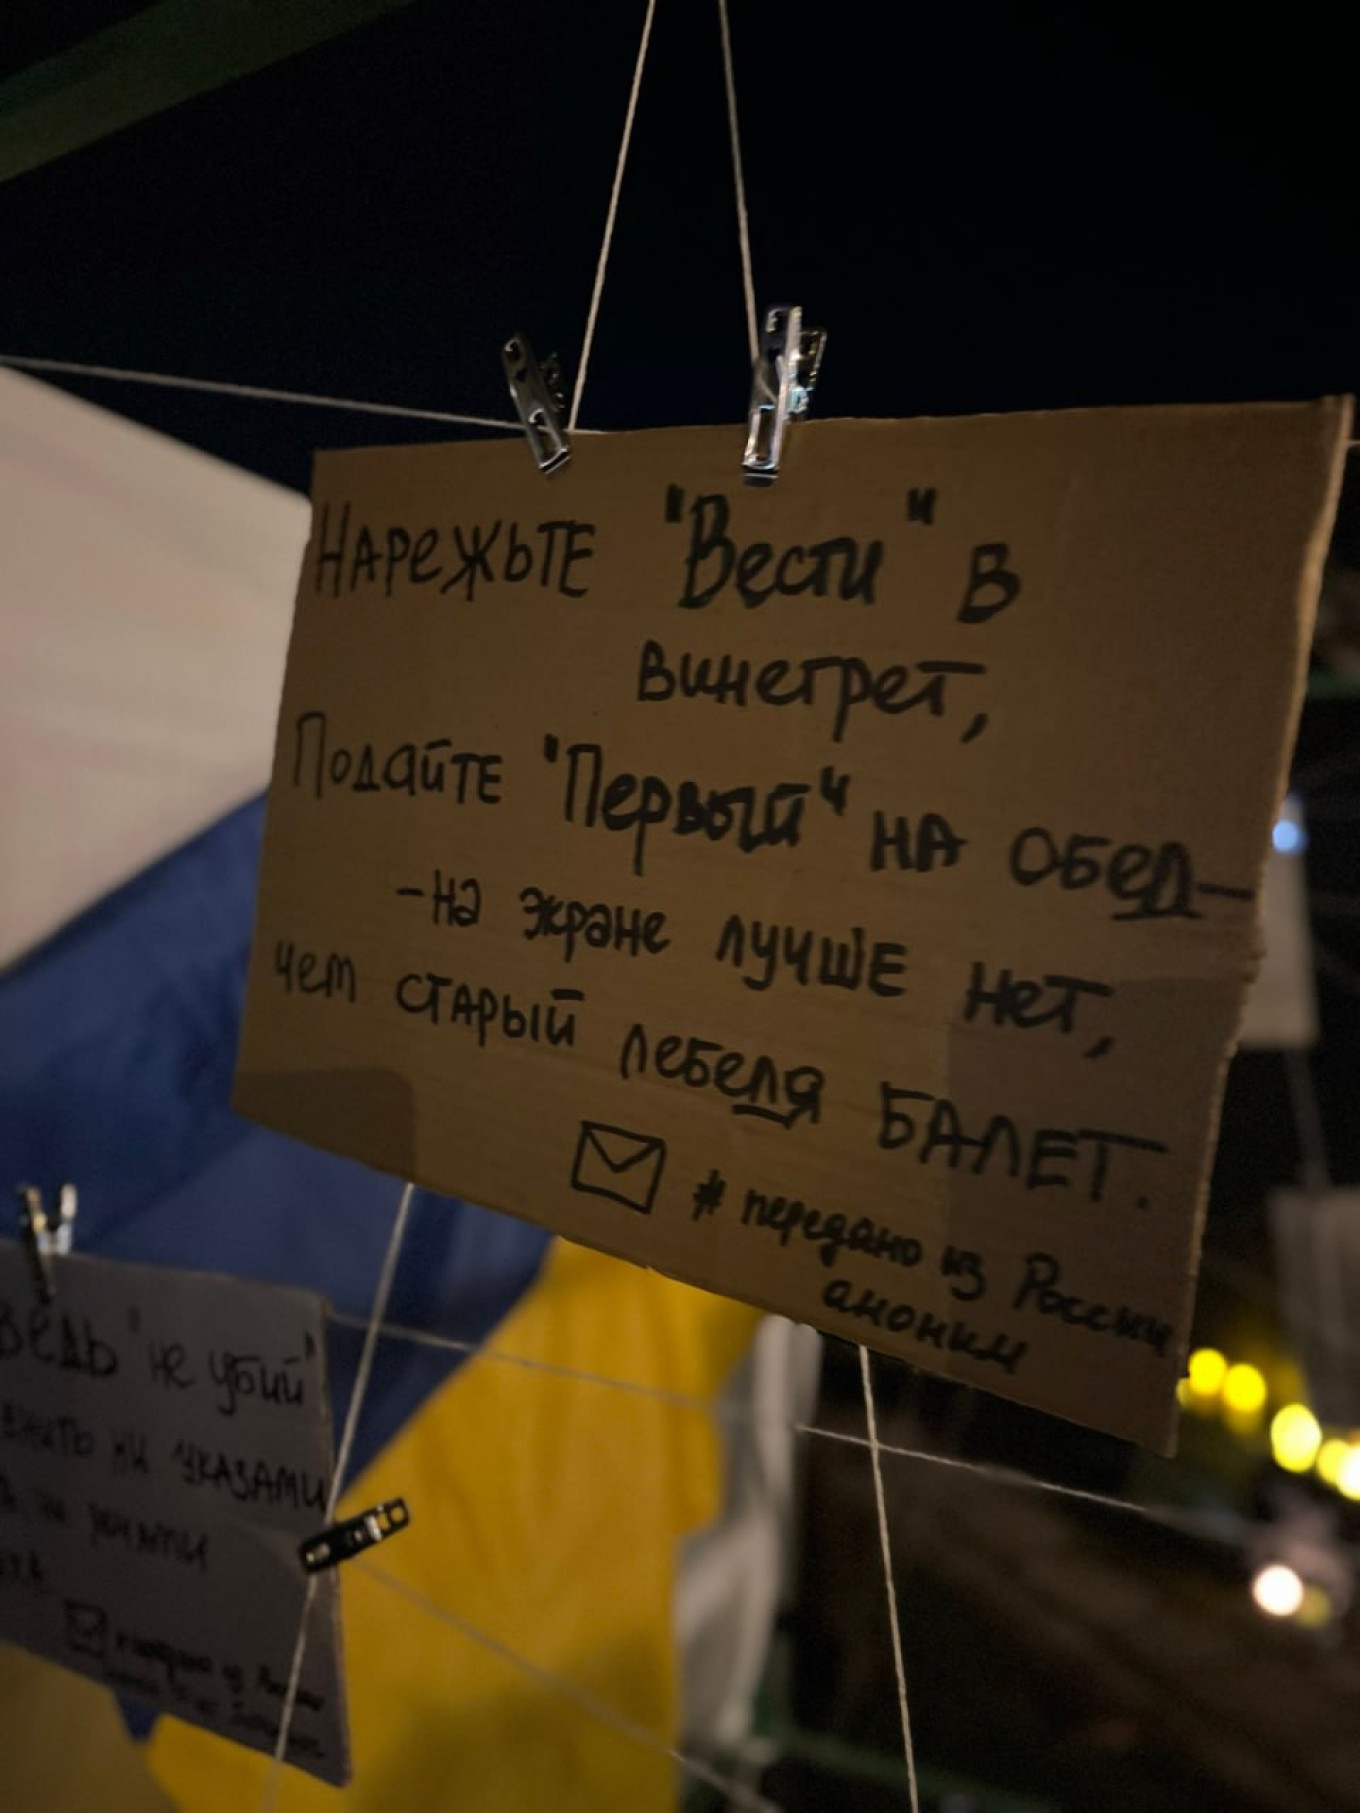 Нарежьте "Вести" в
винегрет,
Подайте "Первый" на обед—
—на экране лучше нет,
чем старый лебедя БАЛЕТ.
# передано из России
аноним
ведь "не убий"
ни указами